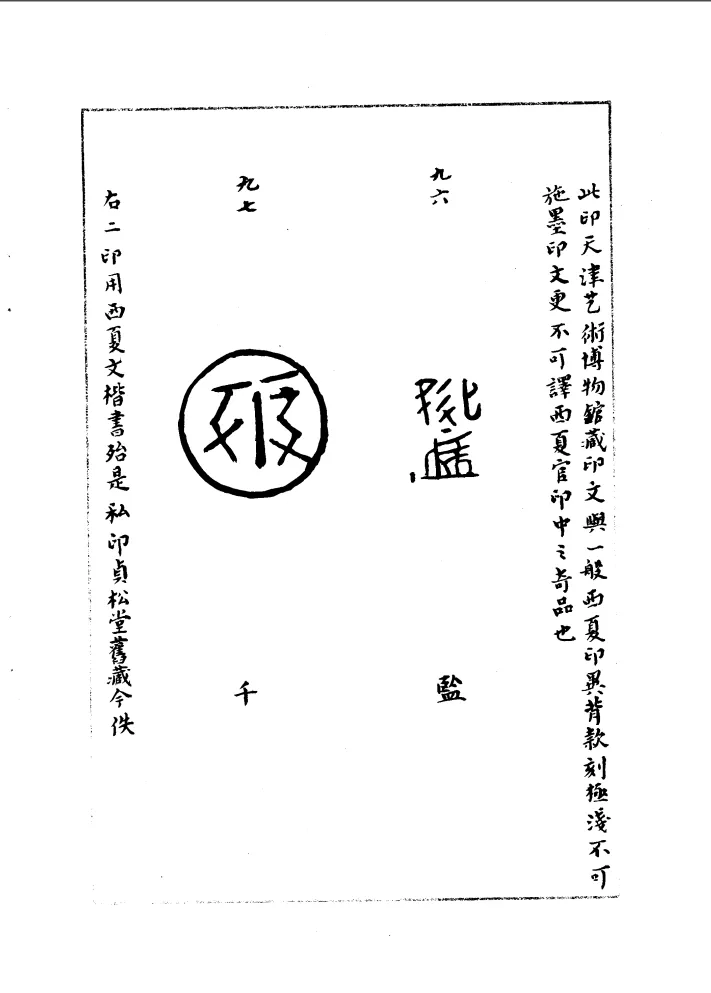 此印天津艺術博物館藏印文與一般西夏印異背款刻極淺不可
施墨印文更不可譯西夏官印中之奇品也
九六
監
九七
千
右二印用西夏文楷書殆是私印貞松堂舊藏今佚